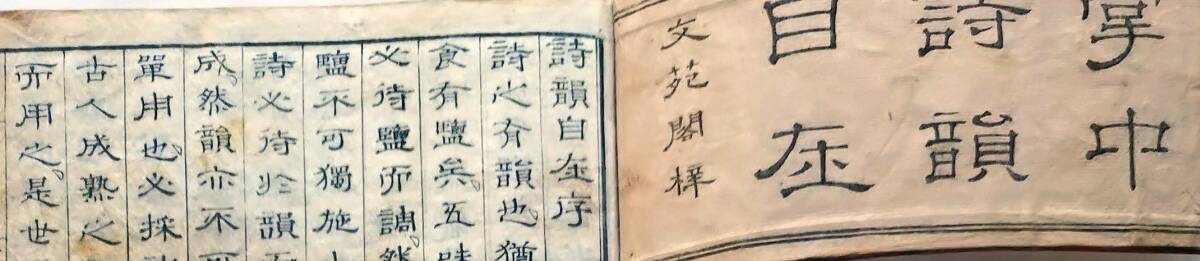 掌中
詩韻
自在
文苑閣梓
詩韻自在序
詩之有韻也。猶
食有鹽矣。五味
必待鹽而調。然
鹽不可獨施
詩必待於韻而
成。然韻亦不可
單用也。必採
古人成熟之
而用之。是世